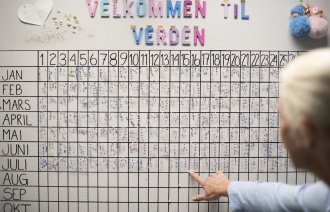 VELKOMMEN TIL
VERDEN
1 2 3 4 5 6 7 8 9 10 11 12 13 14 15 16 17 18 19 20 21 22 23 24 25 26 27 28 29
JAN
FEB
MARS
APRIL
MAI
JUNI
JULI
AUG
SEP
OKT